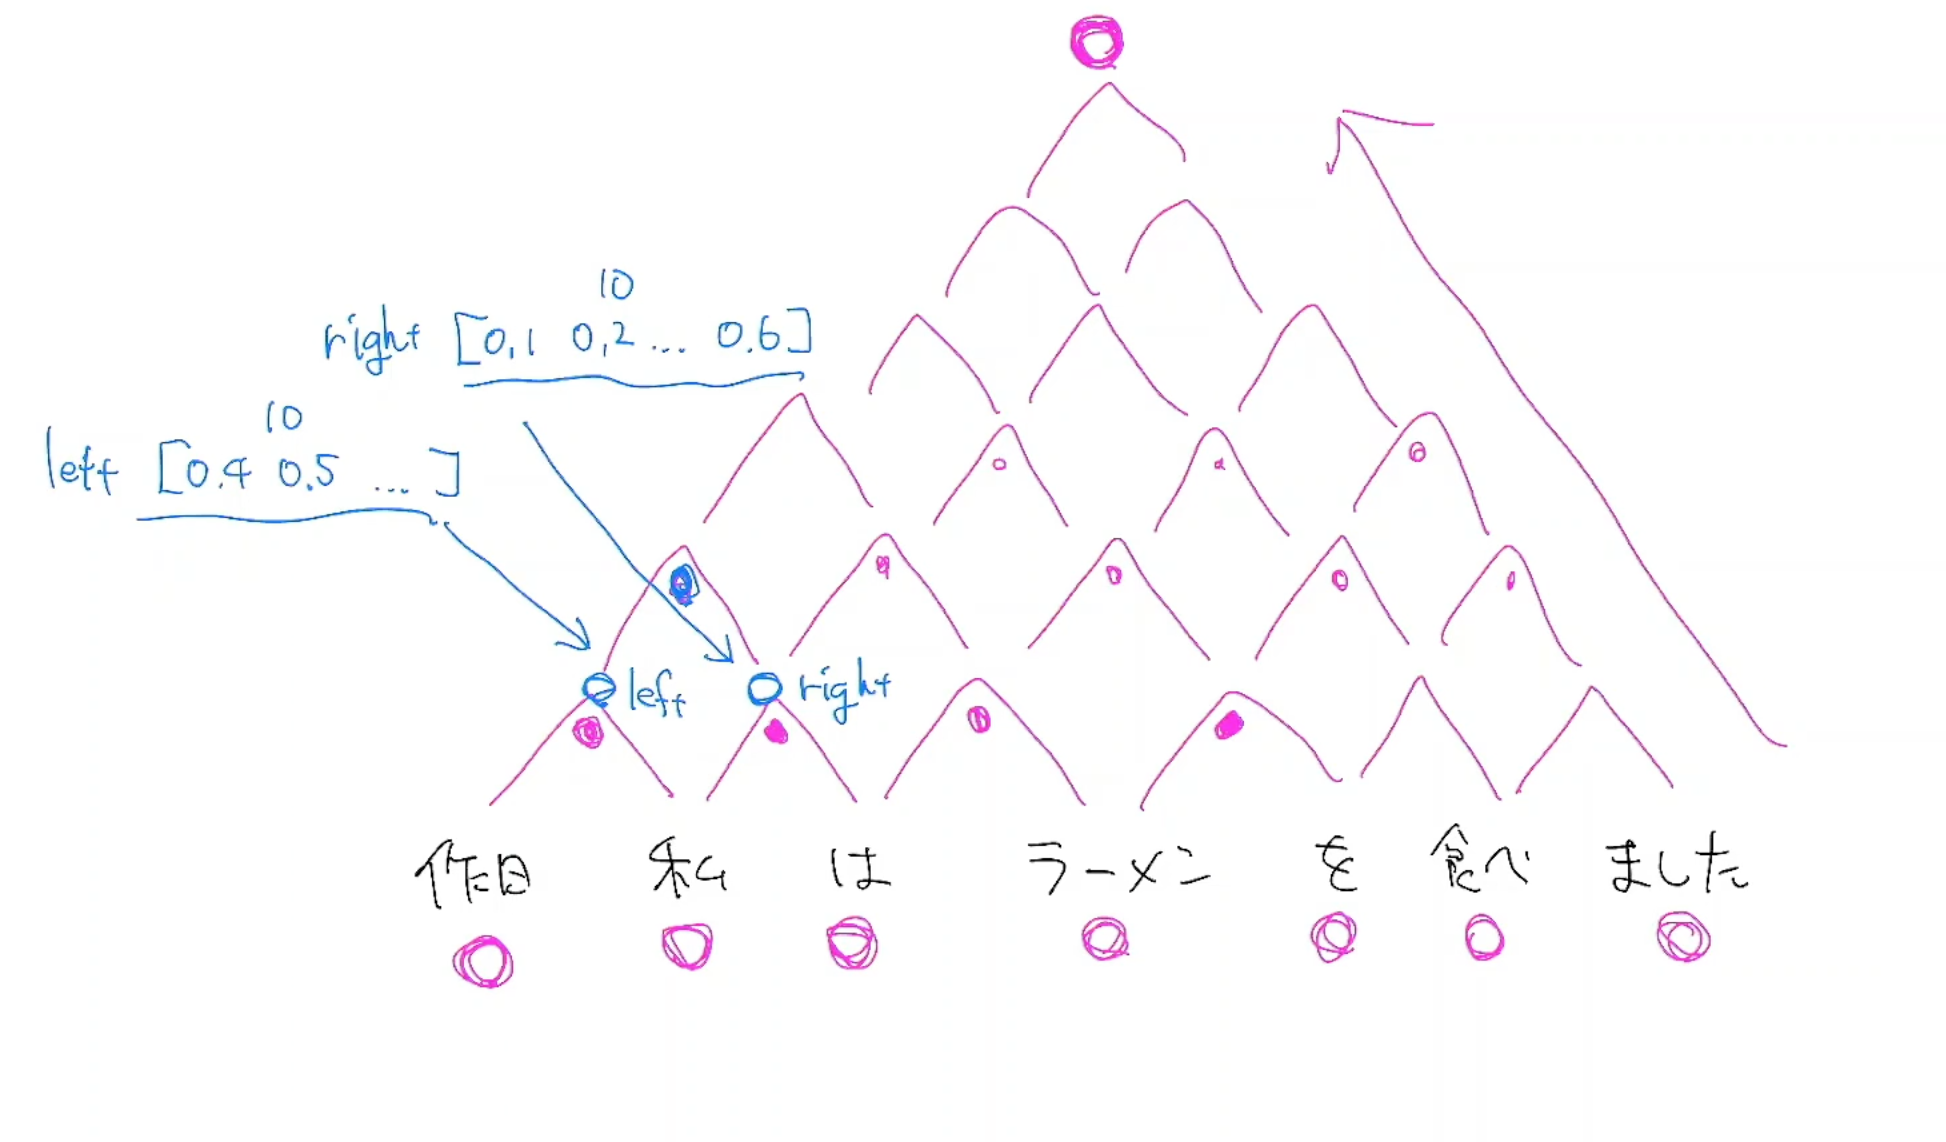 10
right [0,1 0,2 ... 0.6]
10
left [0.4 0.5 ... ]
left right
作日 私 は ラーメン を 食べ ました